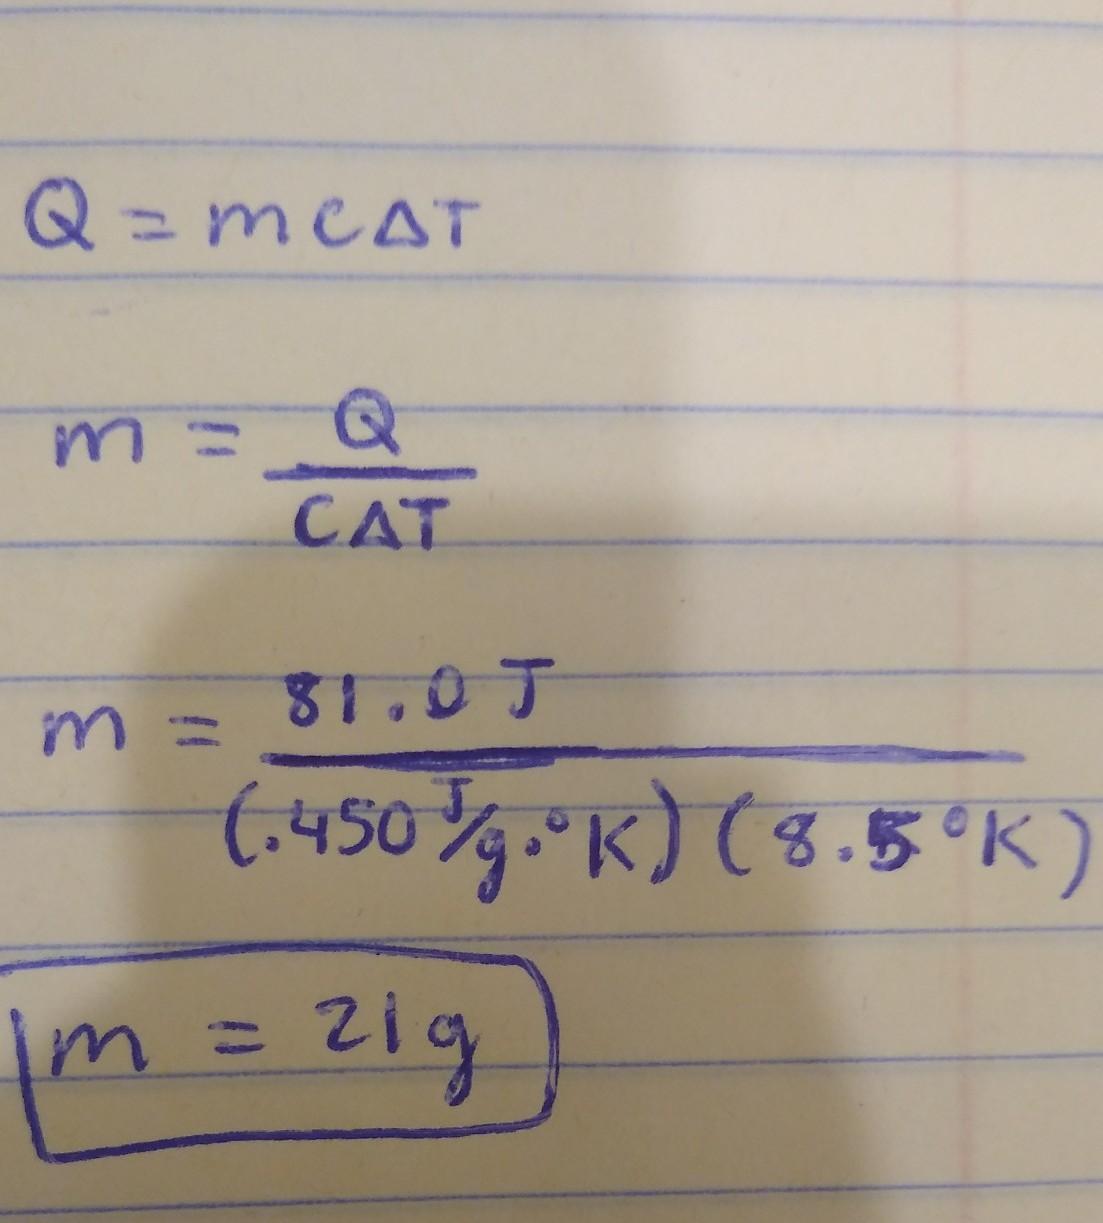 Q = mCΔT
m = Q
CΔT
m = 81.0 J
(.450 J/g.°K) (8.5 °K)
m = 21g